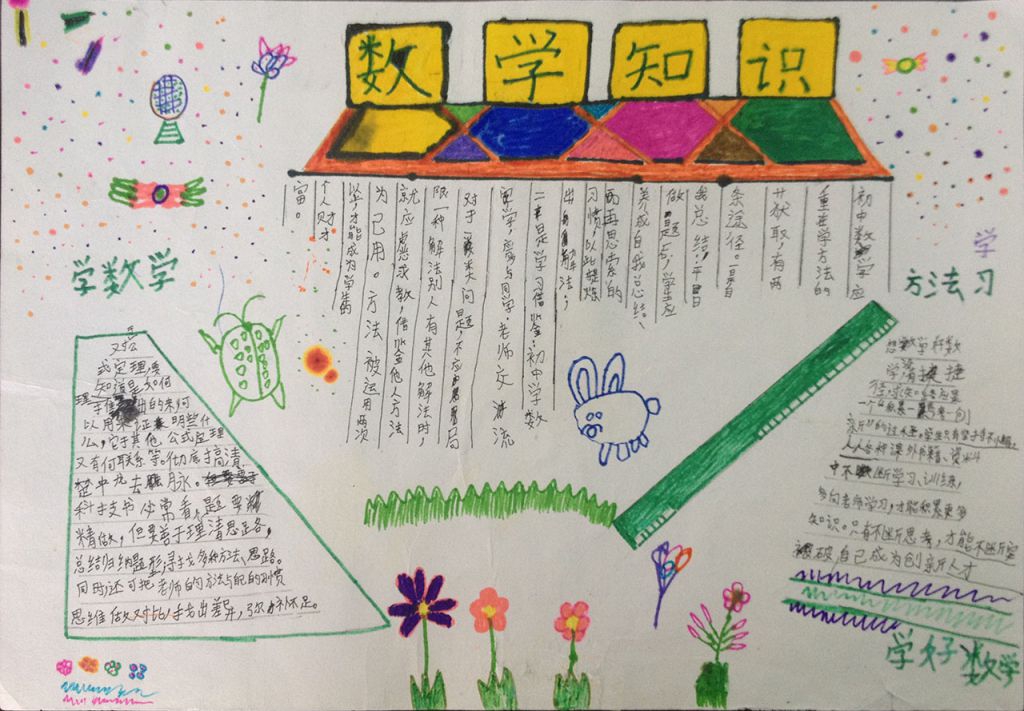 数学知识
初中数学应
重在学方法的
开获取,有两
条途径。一是自
我总结:平日
做题后,学生应
养成自我总结、
再思索的
习惯,以此提炼
出自解法;
二是学习借鉴:初中学数
学,需与同学、老师交流
对于一类大问题,不应局
限一种解法别人有其他解法时,
就应虚感求教,借鉴他人方法
为己用。方法被运用两次
坚,才能成为学生的
个人财
富。
学数学
对公
式定理要
知道是如何
理 的来何
以用来证明些什
么,它于其他公式定理
又有何联系等。彻底于搞清
楚中抗去脉。
科技书必常看,题要
精做,但其弟于理清思路,
总结归纳题形,寻找多种方法、思路。
同时还可把老师的方法与自的习惯
思维做对比,找出差异,弥补不足。
学
方法习
想数学科数
学清捷
一个
新的过本来。学生只有学
人人各种课外书籍、资料
中不断学习、训练,
多向老师学习,才能积累更多
知识。只有不断思考,才能不断突
破自己成为创新人才
学好数学